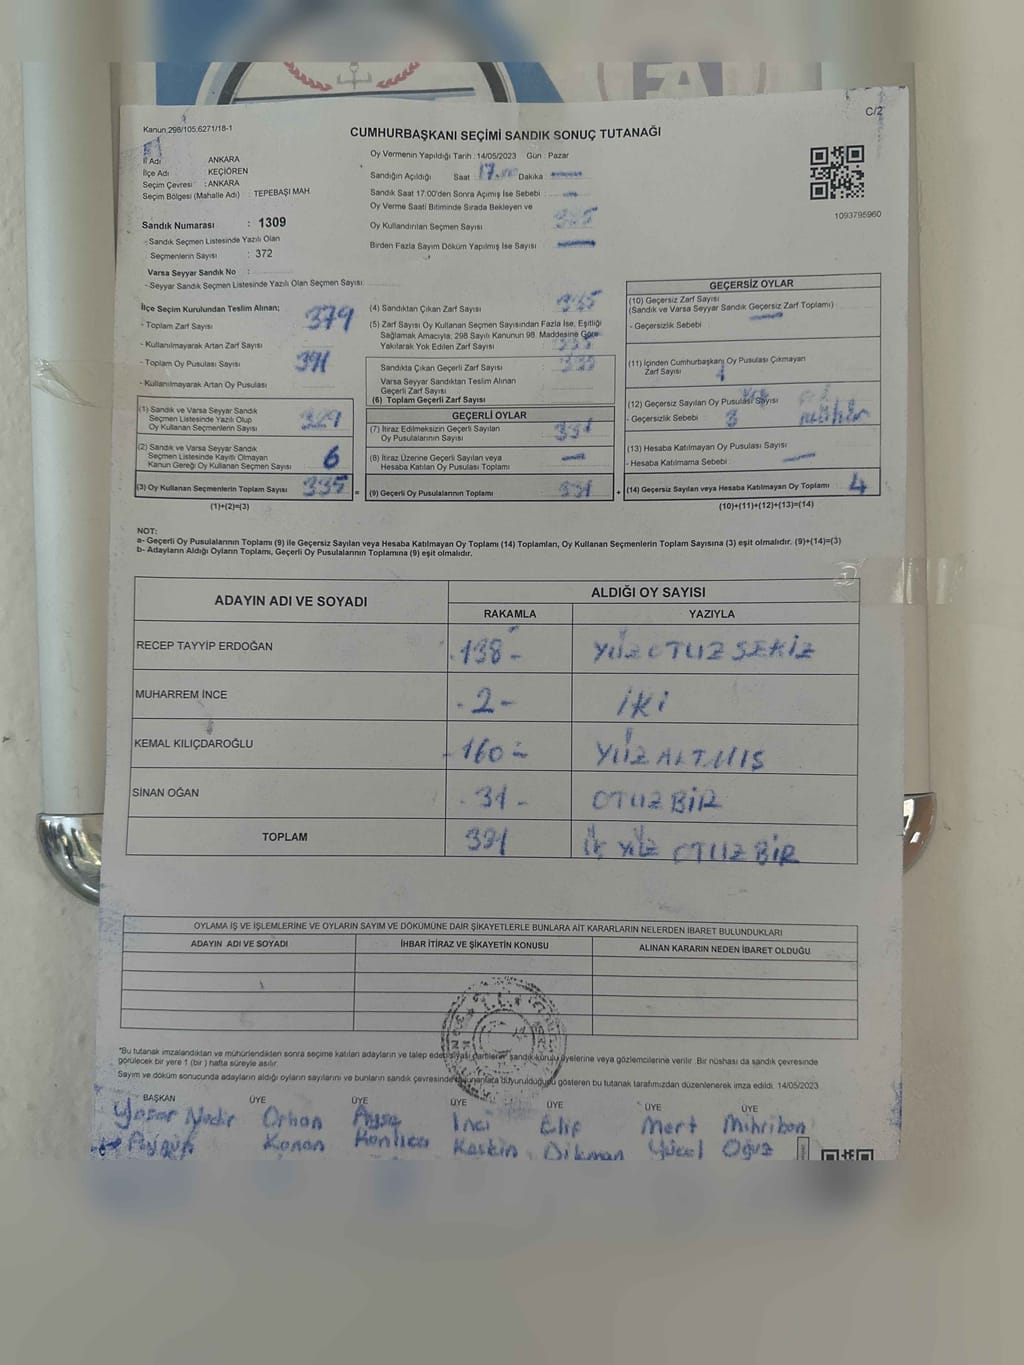 C/2
Kanun;298/105,6271/18-1
CUMHURBAŞKANI SEÇİMİ SANDIK SONUÇ TUTANAĞI
İl Adı ANKARA
İlçe Adı KEÇİÖREN
Seçim Çevresi : ANKARA
Seçim Bölgesi (Mahalle Adı) : TEPEBAŞI MAH.
Oy Vermenin Yapıldığı Tarih : 14/05/2023 Gün : Pazar
Sandığın Açıldığı Saat 17.00 Dakika
Sandık Saat 17.00'den Sonra Açımış İse Sebebi
Oy Verme Saati Bitiminde Sırada Bekleyen ve
Oy Kullandırılan Seçmen Sayısı
Birden Fazla Sayım Döküm Yapılmış İse Sayısı
1093795960
Sandık Numarası : 1309
- Sandık Seçmen Listesinde Yazılı Olan
Seçmenlerin Sayısı : 372
Varsa Seyyar Sandık No :
- Seyyar Sandık Seçmen Listesinde Yazılı Olan Seçmen Sayısı:
İlçe Seçim Kurulundan Teslim Alınan;
- Toplam Zarf Sayısı 379
- Kullanılmayarak Artan Zarf Sayısı
- Toplam Oy Pusulası Sayısı 391
- Kullanılmayarak Artan Oy Pusulası
(1) Sandık ve Varsa Seyyar Sandık
Seçmen Listesinde Yazılı Olup
Oy Kullanan Seçmenlerin Sayısı 329
(2) Sandık ve Varsa Seyyar Sandık
Seçmen Listesinde Kayıtlı Olmayan
Kanun Gereği Oy Kullanan Seçmen Sayısı 6
(3) Oy Kullanan Seçmenlerin Toplam Sayısı 335 =
(1)+(2)=(3)
(4) Sandıktan Çıkan Zarf Sayısı 335
(5) Zarf Sayısı Oy Kullanan Seçmen Sayısından Fazla İse, Eşitliği
Sağlamak Amacıyla; 298 Sayılı Kanunun 98. Maddesine Göre
Yakılarak Yok Edilen Zarf Sayısı
Sandıkta Çıkan Geçerli Zarf Sayısı 335
Varsa Seyyar Sandıktan Teslim Alınan
Geçerli Zarf Sayısı
(6) Toplam Geçerli Zarf Sayısı
GEÇERLİ OYLAR
(7) İtiraz Edilmeksizin Geçerli Sayılan
Oy Pusulalarının Sayısı 331
(8) İtiraz Üzerine Geçerli Sayılan veya
Hesaba Katılan Oy Pusulası Toplamı
(9) Geçerli Oy Pusulalarının Toplamı 331 +
GEÇERSİZ OYLAR
(10) Geçersiz Zarf Sayısı
(Sandık ve Varsa Seyyar Sandık Geçersiz Zarf Toplamı)
- Geçersizlik Sebebi
(11) İçinden Cumhurbaşkanı Oy Pusulası Çıkmayan
Zarf Sayısı 1
(12) Geçersiz Sayılan Oy Pusulası Sayısı
- Geçersizlik Sebebi 3
(13) Hesaba Katılmayan Oy Pusulası Sayısı
- Hesaba Katılmama Sebebi
(14) Geçersiz Sayılan veya Hesaba Katılmayan Oy Toplamı 4
(10)+(11)+(12)+(13)=(14)
NOT:
a- Geçerli Oy Pusulalarının Toplamı (9) ile Geçersiz Sayılan veya Hesaba Katılmayan Oy Toplamı (14) Toplamları, Oy Kullanan Seçmenlerin Toplam Sayısına (3) eşit olmalıdır. (9)+(14)=(3)
b- Adayların Aldığı Oyların Toplamı, Geçerli Oy Pusulalarının Toplamına (9) eşit olmalıdır.
ADAYIN ADI VE SOYADI ALDIĞI OY SAYISI
RAKAMLA YAZIYLA
RECEP TAYYİP ERDOĞAN 138 YÜZ OTUZ SEKİZ
MUHARREM İNCE 2 İKİ
KEMAL KILIÇDAROĞLU 160 YÜZ ALTMIŞ
SİNAN OĞAN 31 OTUZ BİR
TOPLAM 331 ÜÇ YÜZ OTUZ BİR
OYLAMA İŞ VE İŞLEMLERİNE VE OYLARIN SAYIM VE DÖKÜMÜNE DAİR ŞİKAYETLERLE BUNLARA AİT KARARLARIN NELERDEN İBARET BULUNDUKLARI
ADAYIN ADI VE SOYADI İHBAR İTİRAZ VE ŞİKAYETİN KONUSU ALINAN KARARIN NEDEN İBARET OLDUĞU
*Bu tutanak imzalandıktan ve mühürlendikten sonra seçime katılan adayların ve talep eden siyasi partilerin sandık kurulu üyelerine veya gözlemcilerine verilir. Bir nüshası da sandık çevresinde
görülecek bir yere 1 (bir) hafta süreyle asılır.
Sayım ve döküm sonucunda adayların aldığı oyların sayılarını ve bunların sandık çevresinde bulunanlara duyurulduğunu gösteren bu tutanak tarafımızdan düzenlenerek imza edildi. 14/05/2023
BAŞKAN ÜYE ÜYE ÜYE ÜYE ÜYE ÜYE
Yaşar Nadir Orhan Ayşe İnci Elif Mert Mihriban
Konan Keskin Dikman Yücel Oğuz